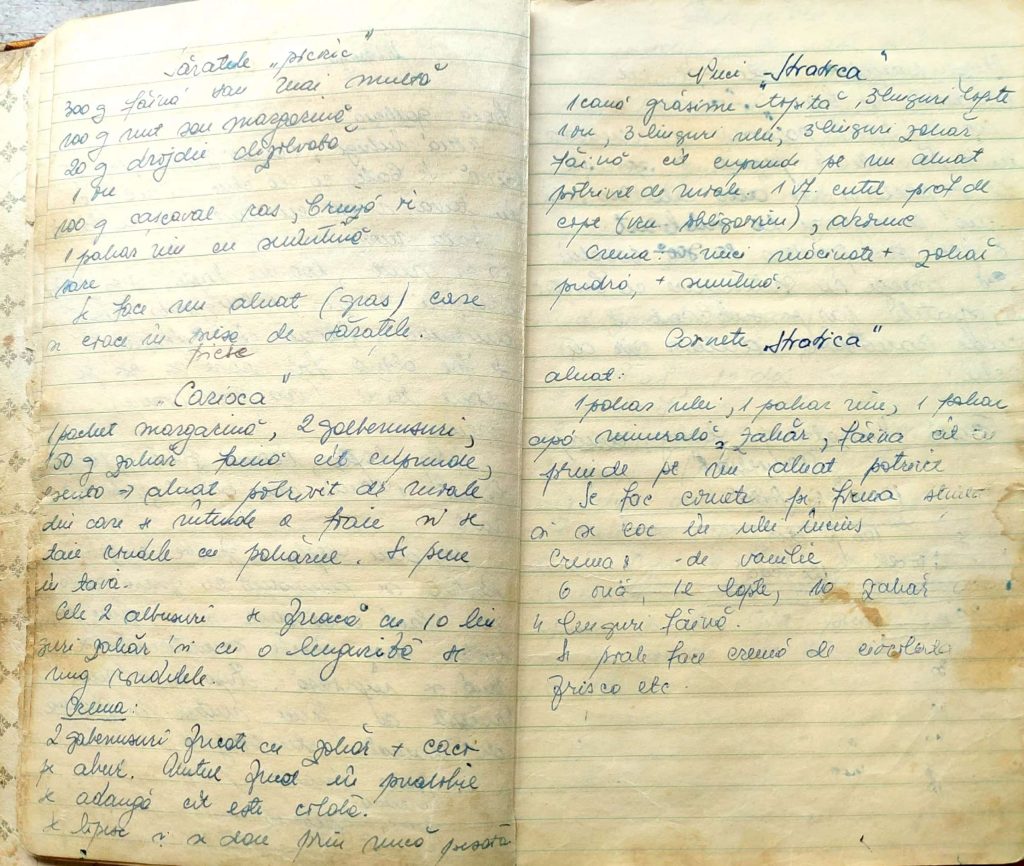 Sărățele „picnic"
300 g făină sau mai multă
100 g unt sau margarină
20 g drojdie dizolvată
1 ou
100 g cașcaval ras, brînză și
1 pahar vin cu smîntînă
sare
Se face un aluat (gras) care
se coace în de sărățele.
„Carioca"
1 pachet margarină, 2 gălbenușuri,
150 g zahăr făină cît cuprinde,
esență → aluat potrivit de moale
din care se întinde o foaie și se
taie rondele cu păhărele. Se pune
în tavă.
Cele 2 albușuri se freacă cu 10 lin
guri zahăr și cu o linguriță se
ung rondelele.
Crema:
2 gălbenușuri frecate cu zahăr + cacao
pe abur. Untul frecat în
se adaugă cît este caldă.
se lipesc și se dau prin nucă pisată
Nuci „Stratica"
1 cană grăsime topită, 3 linguri lapte
1 ou, 3 linguri ulei, 3 linguri zahăr
făină cît cuprinde pe un aluat
potrivit de moale 1 vf. cuțit praf de
copt (nu obligatoriu), arome
Crema: nuci măcinate + zahăr
pudră, + smîntînă.
Cornete „Stratica"
aluat:
1 pahar ulei, 1 pahar vin, 1 pahar
apă minerală, zahăr, făină cît cu
prinde pe un aluat potrivit
Se fac cornete pe forme
și se coc în ulei încins
Crema: - de vanilie
6 ouă, 1 l lapte, 10 zahăr
4 linguri făină.
Se poate face cremă de ciocolată
frișcă etc.